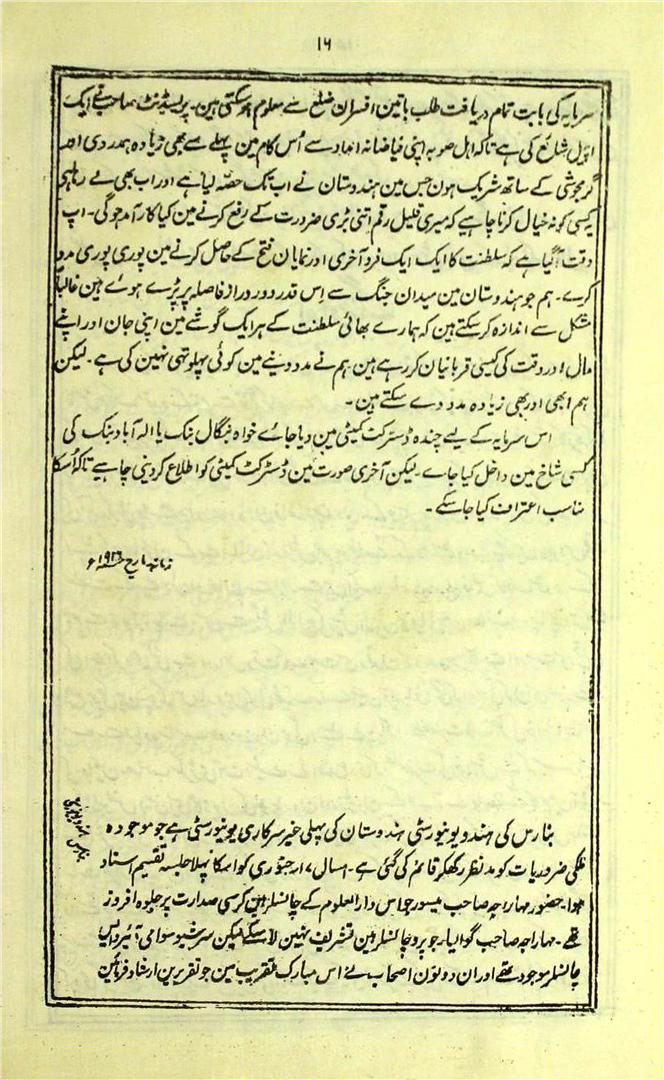 ۱۶
سرمایہ کی بابت تمام دریافت طلب باتین افسران ضلع سے معلوم ہوسکتی ہین۔ پریسیڈنٹ صاحب نے ایک
اپیل شائع کی ہے تاکہ اہل صوبہ اپنی فیاضانہ امداد سے اُس کام مین پہلے سے بھی زیادہ ہمدردی اور
گرمجوشی کے ساتھ شریک ہون جس مین ہندوستان نے اب تک حصّہ لیا ہے اور اب بھی لے رہا ہے
کسی کو نہ خیال کرنا چاہے کہ میری قلیل رقم اتنی بڑی ضرورت کے رفع کرنے مین کیا کارآمد ہوگی۔ اب
وقت آگیا ہے کہ سلطنت کا ایک ایک فرد آخری اور نمایان فتح کے حاصل کرنے مین پوری پوری مدد
کرے۔ ہم جو ہندوستان مین میدان جنگ سے اِس قدر دور دراز فاصلہ پر پڑے ہوئے ہین غالباً
مشکل سے اندازہ کرسکتے ہین کہ ہمارے بھائی سلطنت کے ہر ایک گوشے مین اپنی جان اور اپنے
مال اور وقت کی کیسی قربانیان کر رہے ہین ہم نے مدد دینے مین کوئی پہلوتہی نہین کی ہے۔ لیکن
ہم ابھی اور بھی زیادہ مدد دے سکتے ہین۔
اس سرمایہ کے لیے چندہ ڈسٹرکٹ کمیٹی مین دیا جائے خواہ بنگال بنک یا الہ آباد بنک کی
کسی شاخ مین داخل کیا جاے۔ لیکن آخری صورت مین ڈسٹرکٹ کمیٹی کو اطلاع کردینی چاہیے تاکہ اُسکا
مناسب اعتراف کیا جاسکے۔
زمانہ مارچ
بنارس کی ہندو یونیورسٹی ہندوستان کی پہلی غیر سرکاری یونیورسٹی ہے جو موجودہ
ملکی ضروریات کو مد نظر رکھکر قائم کی گئی ہے۔ امسال ۱۷؍ جنوری کو اسکا پہلا جلسہ تقسیم اسناد
ہوا۔ حضور مہاراجہ صاحب میسور جو اس دارالعلوم کے چانسلر ہین کرسی صدارت پر جلوہ افروز
تھے۔ مہاراجہ صاحب گوالیار جو پرو چانسلر ہین تشریف نہین لاسکے لیکن سر شیو سوامی آئیر وایس
چانسلر موجود تھے اور ان دونون اصحاب نے اس مبارک تقریب مین جو تقریرین ارشاد فرمائین